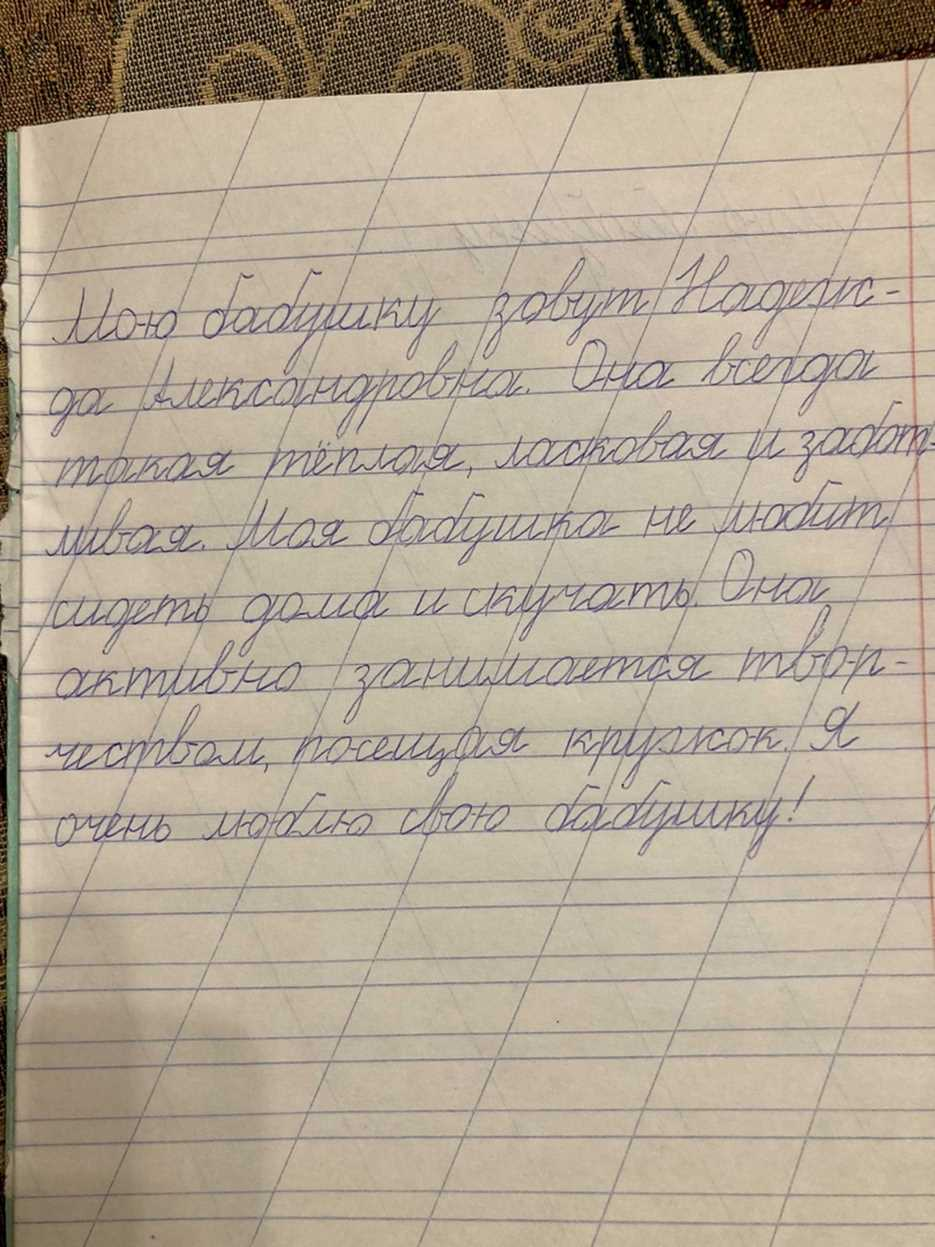 Мою бабушку зовут Надеж-
да Александровна. Она всегда
такая тёплая, ласковая и забот-
ливая. Моя бабушка не любит
сидеть дома и скучать. Она
активно занимается твор-
чеством, посещая кружок. Я
очень люблю свою бабушку!